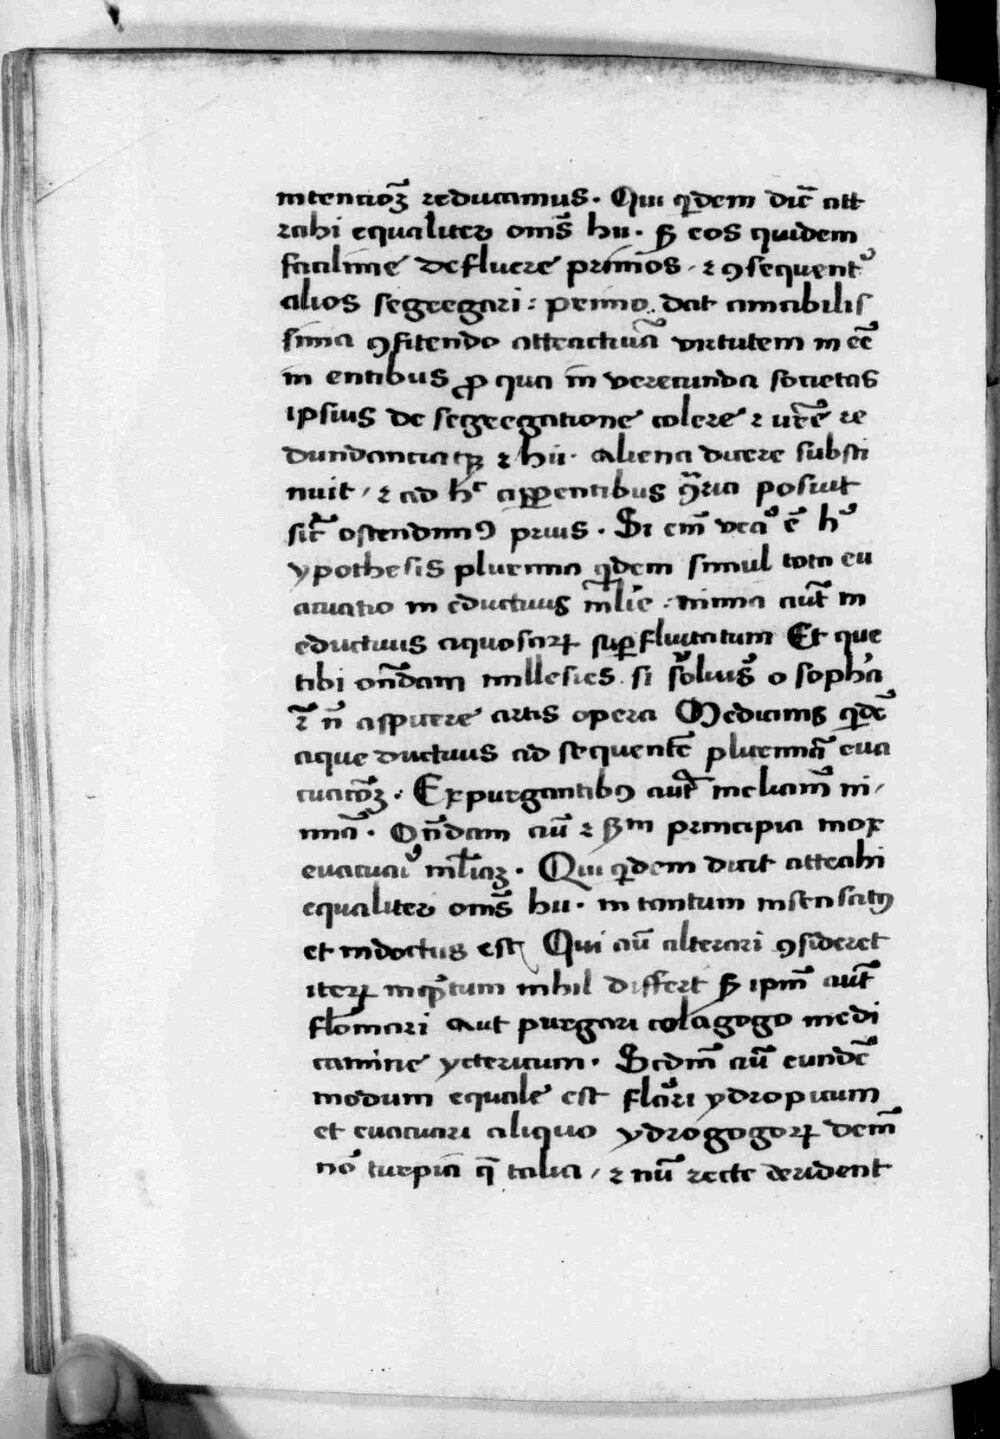 intencioꝫ reducamus. Qui qͥdem dic̄ att
rahi equaliter om̄s hii. sꝫ eos quidem
facilime defluere primos, ⁊ ꝯsequentͦ
alios segregari: primo dat amabilis
sima ꝯfitendo attractiuā virtutem in eē
in entibus ꝓ qua in verecunda societas
ipsius de segregatione colere ⁊ re
dundanciaqꝫ ⁊ hii. aliena dicere substi
nuit, ⁊ ad hͨ apparentibus ꝯͣria posiuit
sic̄ ostendimꝰ prius. Si em̄ ē hͦ
ypothesis plurima qͥdem simul tota eu
acuatio in eductiuis mīa aut̄ in
eductiuis aquosaꝝ suꝑfluitatum Et que
tibi on̄dam millesies si o sopha
⁊ n̄ aspicere artis opera Medicinis qͥdē
aque ductiuis ad sequentē plurimā eua
cuacōꝫ. Expurgantibꝰ aut̄ meliam̄ mi,
nimā. On̄dam aū ⁊ sꝫm principia mox
Qui qͥdem dicit attrahi
equaliter om̄s hii. in tantum insensatꝰ
et indoctus est, Qui aū alterari ꝯsideret
iteꝝ inqͣtum nihil differt sꝫ ipm̄ aut̄
fleomari aut purgari colagogo medi
camine yctericum. Scdm̄ aū eundē
modum equale est ydropicum
et euacuari aliquo ydrogogoꝝ dem̄
nō turpia qͥ talia, ⁊ nū recte derident